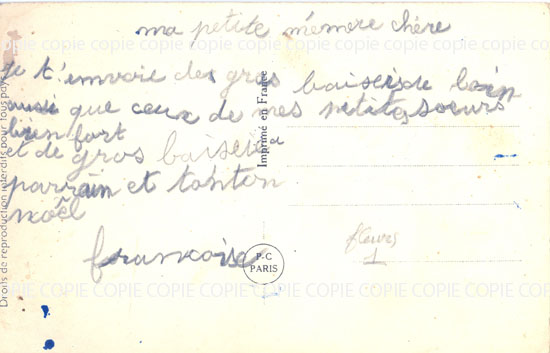 ma petite mémère chère
je t'envoie des gros baisers de loin
aussi que ceux de mes petites soeurs
bien fort
et de gros baisers a
parrain et tonton
noël
francoise
fleurs
1
Imprimé en France
P-C
PARIS
Droits de reproduction interdits pour tous pays
COPIE COPIE COPIE COPIE COPIE COPIE COPIE COPIE
COPIE COPIE COPIE COPIE COPIE COPIE COPIE COPIE